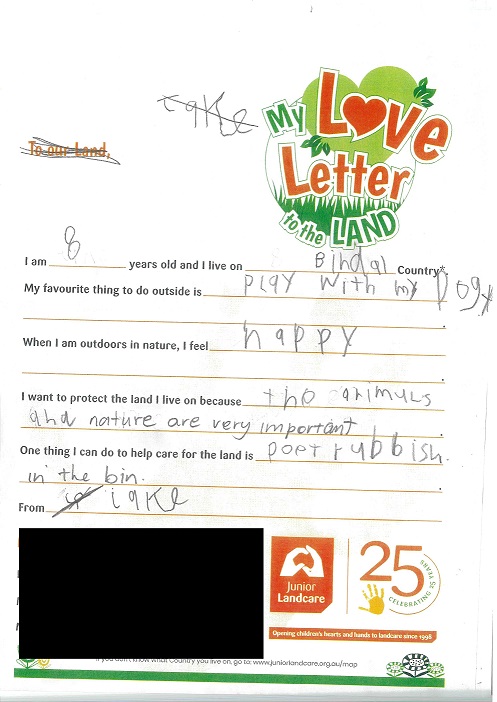 My Love
Letter
to the LAND
To our Land,
I am 8 years old and I live on Bindal Country*.
My favourite thing to do outside is play with my Dogx
.
When I am outdoors in nature, I feel happy
.
I want to protect the land I live on because the animuls
and nature are very important .
One thing I can do to help care for the land is poet rubbish.
in the bin. .
From iake
Junior
Landcare
25
CELEBRATING 25 YEARS
Opening children's hearts and hands to landcare since 1998
If you don't know what Country you live on, go to: www.juniorlandcare.org.au/map